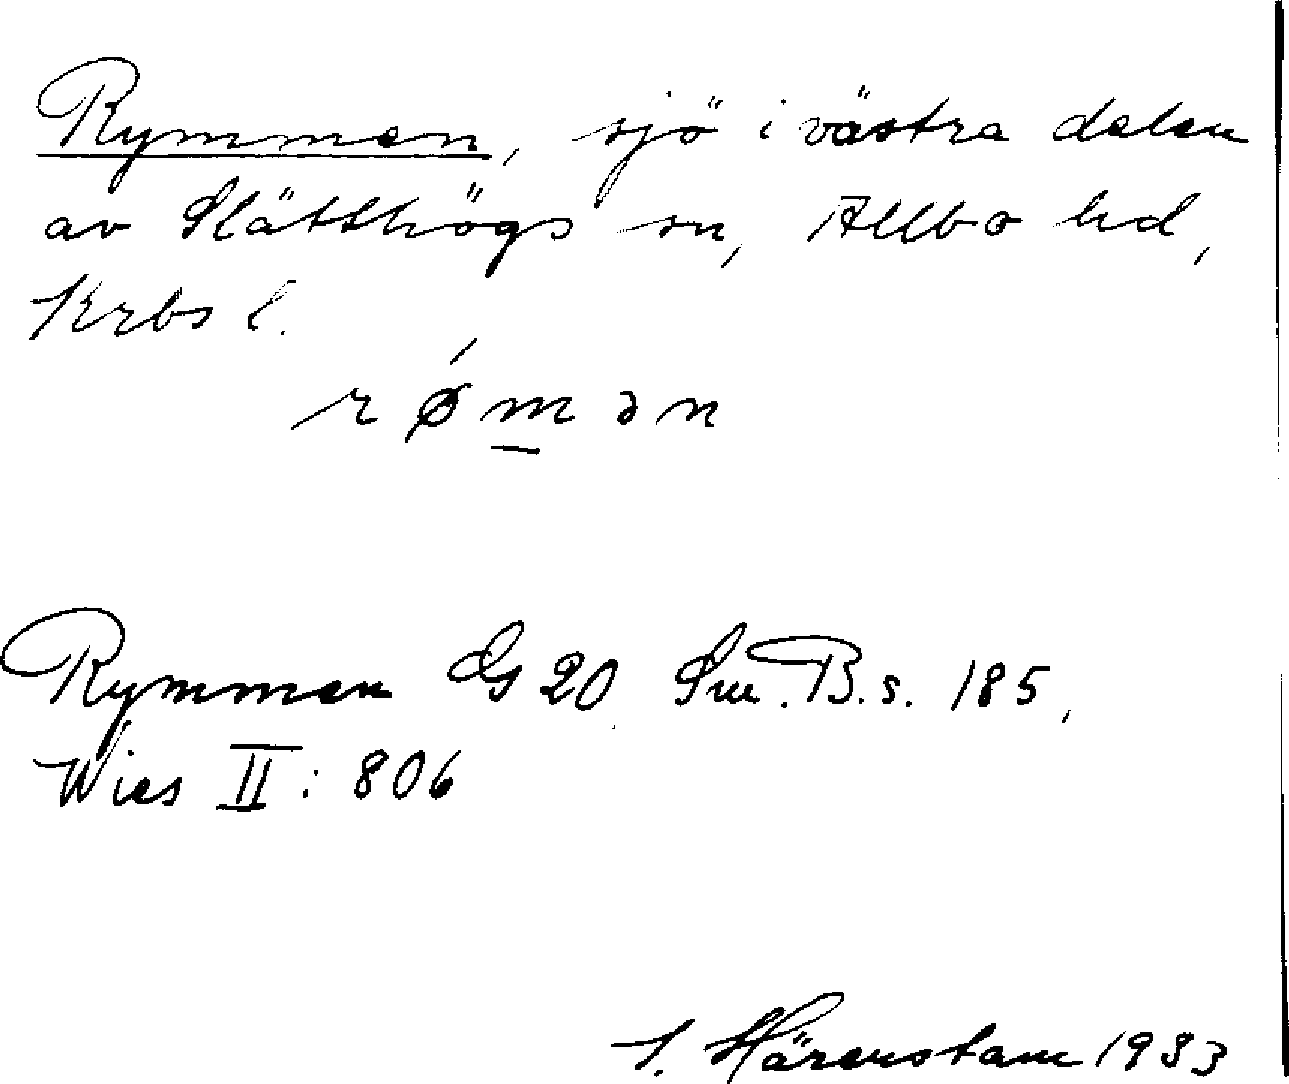 Rymmen, sjö i västra delen
av Slätthögs sn, Allbo hd,
Krbs l.
rø´m̲ən
Rymmen G 20 Sm. B. s. 185,
Wies II: 806
S. Härenstam 1933